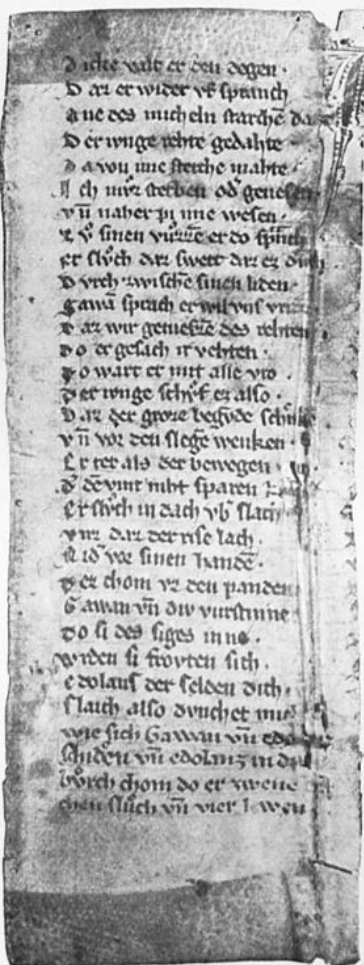 Dicke valt er den degen.
Daz er wider vf spranch
Ane des micheln starche
Der iunge rehte gedahte
Da von ime sterche mahte
Ich mvz sterben od genesen
vn naher pi ime wesen.
zv sinen vvzze er do sprach
er slvch daz swert daz ez
Dvrch zwischē sinen liden.
Gawā sprach er wil vns
Daz wir geniezē des rehten
Do er gesach ir vehten.
Do wart er mit alle vro.
Der iunge schvf ez also.
Daz der groze begvde
vn vor den slegē wenken.
Er tet als der bewegen
dē vint niht sparen
Er slvch in dach vb slach
vnz daz der rise lach.
Nid vor sinen handē.
Der chom vz den panden
Gawan vn div vurstinne
Do si des siges inne.
wrden si frovten sich.
edolanz der selden dich.
slach also dvnchet
wie sich Gawan vn
schidēn vn edolanz in
bvrch chom do er zwene
chen slvch vn vier lewen